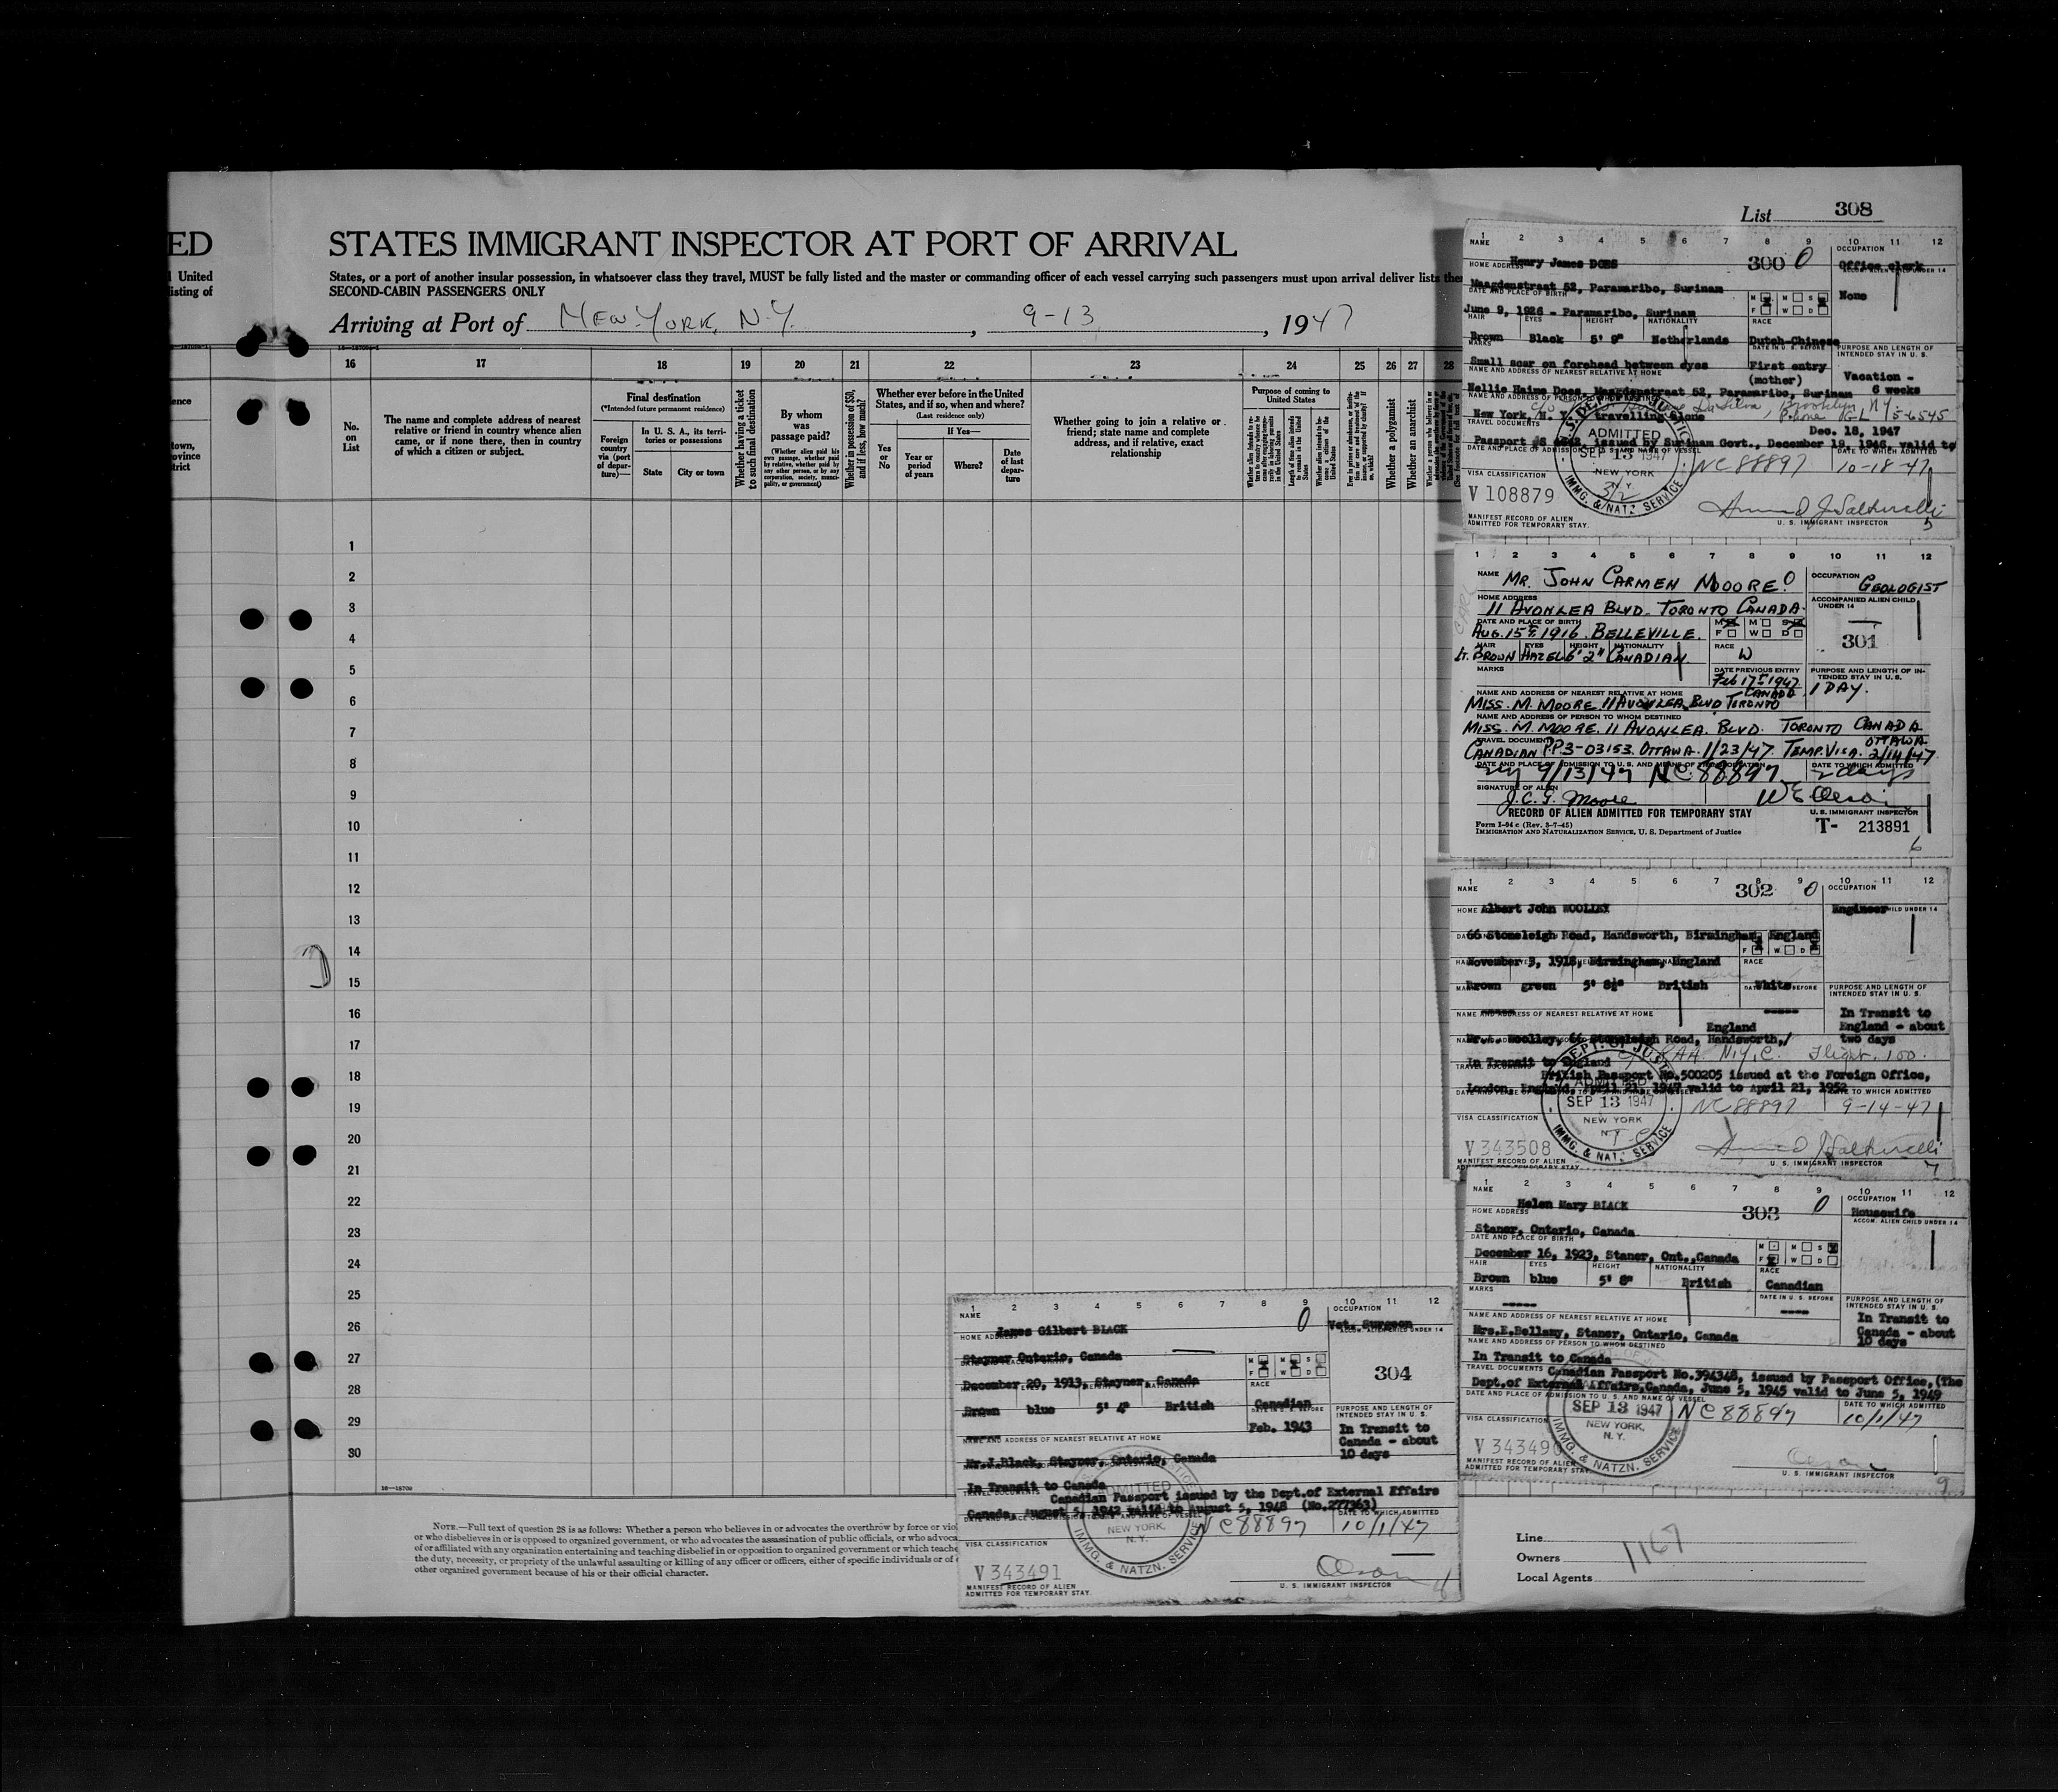 List 308
ED STATES IMMIGRANT INSPECTOR AT PORT OF ARRIVAL
l United States, or a port of another insular possession, in whatsoever class they travel, MUST be fully listed and the master or commanding officer of each vessel carrying such passengers must upon arrival deliver lists the
listing of SECOND-CABIN PASSENGERS ONLY
Arriving at Port of NEW YORK, N.Y. , 9-13 , 1947
16 17 18 19 20 21 22 23 24 25 26 27 28
No. on List
The name and complete address of nearest relative or friend in country whence alien came, or if none there, then in country of which a citizen or subject.
Final destination
(*Intended future permanent residence)
Foreign country via (port of departure)—
In U. S. A., its territories or possessions
State
City or town
Whether having a ticket to such final destination
By whom was passage paid?
(Whether alien paid his own passage, whether paid by relative, whether paid by any other person, or by any corporation, society, municipality, or government)
Whether in possession of $50, and if less, how much?
Whether ever before in the United States, and if so, when and where?
(Last residence only)
Yes or No
If Yes—
Year or period of years
Where?
Date of last departure
Whether going to join a relative or friend; state name and complete address, and if relative, exact relationship
Purpose of coming to United States
Whether a polygamist
Whether an anarchist
1
2
3
4
5
6
7
8
9
10
11
12
13
14
15
16
17
18
19
20
21
22
23
24
25
26
27
28
29
30
16—18708
NOTE.—Full text of question 28 is as follows: Whether a person who believes in or advocates the overthrow by force or vio
or who disbelieves in or is opposed to organized government, or who advocates the assassination of public officials, or who advoca
of or affiliated with any organization entertaining and teaching disbelief in or opposition to organized government or which teache
the duty, necessity, or propriety of the unlawful assaulting or killing of any officer or officers, either of specific individuals or of
other organized government because of his or their official character.
1 2 3 4 5 6 7 8 9 10 11 12
NAME Henry James DOES 300 0
OCCUPATION Office clerk
HOME ADDRESS
Maagdenstraat 52, Paramaribo, Surinam
None
DATE AND PLACE OF BIRTH
June 9, 1926 - Paramaribo, Surinam
HAIR EYES HEIGHT NATIONALITY RACE
Brown Black 5' 9" Netherlands Dutch-Chinese
MARKS
PURPOSE AND LENGTH OF INTENDED STAY IN U. S.
Small scar on forehead between eyes First entry
NAME AND ADDRESS OF NEAREST RELATIVE AT HOME (mother) Vacation - 6 weeks
Nellie Haime Does, Maagdenstraat 52, Paramaribo, Surinam
New York, N. Y. travelling alone
TRAVEL DOCUMENTS Dec. 18, 1947
Passport issued by Surinam Govt., December 19, 1946, valid to
NC 88897 10-18-47
U.S. DEPT. OF JUSTICE ADMITTED SEP 13 1947 NEW YORK N.Y. IMMG. & NATZ. SERVICE
VISA CLASSIFICATION
V 108879
MANIFEST RECORD OF ALIEN ADMITTED FOR TEMPORARY STAY.
U. S. IMMIGRANT INSPECTOR
5
1 2 3 4 5 6 7 8 9 10 11 12
NAME MR. JOHN CARMEN MOORE 0
OCCUPATION GEOLOGIST
HOME ADDRESS
11 AVONLEA BLVD. TORONTO CANADA.
ACCOMPANIED ALIEN CHILD UNDER 14
DATE AND PLACE OF BIRTH
AUG. 15th 1916. BELLEVILLE.
M M S
F W D
301
HAIR EYES HEIGHT NATIONALITY RACE
LT. BROWN HAZEL 6' 2" CANADIAN. W
MARKS
DATE PREVIOUS ENTRY Feb 17th 1947
PURPOSE AND LENGTH OF INTENDED STAY IN U. S.
1 DAY.
NAME AND ADDRESS OF NEAREST RELATIVE AT HOME
MISS. M. MOORE. 11 AVONLEA BLVD TORONTO CANADA
NAME AND ADDRESS OF PERSON TO WHOM DESTINED
MISS. M. MOORE. 11 AVONLEA. BLVD. TORONTO CANADA
TRAVEL DOCUMENT
CANADIAN P.P. 3-03153. OTTAWA. 1/23/47. TEMP. VISA. OTTAWA 2/14/47.
DATE TO WHICH ADMITTED
NY 9/13/47 NC. 88897 2 days
SIGNATURE OF ALIEN
J. C. G. Moore W E Olson
RECORD OF ALIEN ADMITTED FOR TEMPORARY STAY
U. S. IMMIGRANT INSPECTOR
Form I-94 c (Rev. 3-7-45)
IMMIGRATION AND NATURALIZATION SERVICE, U. S. Department of Justice
T- 213891
6
1 2 3 4 5 6 7 8 9 10 11 12
NAME 302 0
OCCUPATION
Albert John WOOLLEY Engineer
66 Stoneleigh Road, Handsworth, Birmingham, England
November 3, 1918, Birmingham, England
RACE
Brown green 5' 8½" British White
PURPOSE AND LENGTH OF INTENDED STAY IN U. S.
NAME AND ADDRESS OF NEAREST RELATIVE AT HOME
In Transit to England - about two days
England
Woolley, 66 Stoneleigh Road, Handsworth,/
In Transit to England N.Y.C. Flight. 100.
British Passport No.500205 issued at the Foreign Office,
London, England, April 21, 1947 valid to April 21, 1952
NC 88897 9-14-47
DEPT. OF JUSTICE ADMITTED SEP 13 1947 NEW YORK N.Y. IMMG. & NAT. SERVICE
VISA CLASSIFICATION
V 343508
MANIFEST RECORD OF ALIEN
U. S. IMMIGRANT INSPECTOR
7
1 2 3 4 5 6 7 8 9 10 11 12
NAME Helen Mary BLACK 303 0
OCCUPATION Housewife
HOME ADDRESS
ACCOM. ALIEN CHILD UNDER 14
Staner, Ontario, Canada
DATE AND PLACE OF BIRTH
December 16, 1923, Staner, Ont., Canada
HAIR EYES HEIGHT NATIONALITY RACE
Brown blue 5' 8" British Canadian
MARKS
DATE IN U. S. BEFORE
PURPOSE AND LENGTH OF INTENDED STAY IN U. S.
NAME AND ADDRESS OF NEAREST RELATIVE AT HOME
In Transit to Canada - about 10 days
Mrs.E.Bellamy, Staner, Ontario, Canada
NAME AND ADDRESS OF PERSON TO WHOM DESTINED
In Transit to Canada
TRAVEL DOCUMENTS Canadian Passport No.394348, issued by Passport Office, (The
Dept.of External Affairs, Canada, June 5, 1945 valid to June 5, 1949
DATE AND PLACE OF ADMISSION TO U. S. AND NAME OF VESSEL DATE TO WHICH ADMITTED
SEP 13 1947 NEW YORK, N.Y. IMMG. & NATZN. SERVICE
NC 88897 10/1/47
VISA CLASSIFICATION
V 343490
MANIFEST RECORD OF ALIEN ADMITTED FOR TEMPORARY STAY
Olson
U. S. IMMIGRANT INSPECTOR
9
1 2 3 4 5 6 7 8 9 10 11 12
NAME 0
OCCUPATION
James Gilbert BLACK Vet. Surgeon
Stayner Ontario, Canada
304
December 20, 1913, Stayner, Canada
RACE
Brown blue 5' 4" British Canadian
Feb. 1943
PURPOSE AND LENGTH OF INTENDED STAY IN U. S.
NAME AND ADDRESS OF NEAREST RELATIVE AT HOME
In Transit to Canada - about 10 days
Mr.J.Black, Stayner, Ontario, Canada
In Transit to Canada
Canadian Passport issued by the Dept.of External Affairs
Canada, August 5, 1942 valid to August 5, 1948 (No.277363)
DATE TO WHICH ADMITTED
NC 88897 10/1/47
ADMITTED NEW YORK, N.Y. IMMG. & NATZN. SERVICE
VISA CLASSIFICATION
V 343491
MANIFEST RECORD OF ALIEN ADMITTED FOR TEMPORARY STAY
Olson
U. S. IMMIGRANT INSPECTOR
Line
Owners 1167
Local Agents